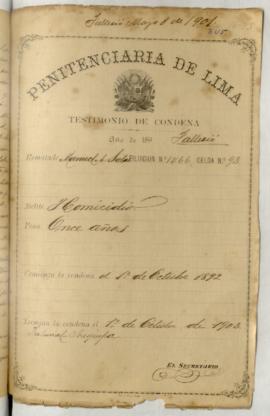 Falleció Mayo 8 de 1901
PENITENCIARIA DE LIMA
TESTIMONIO DE CONDENA
Año de 189 Falleció
Rematado Manuel de FILIACION N.º 1066 CELDA N.º 93
Delito Homicidio
Pena Once años
Comienza la condena el 1º de Octubre 1892
Termina la condena el 1º de Octubre de 1903
EL SECRETARIO